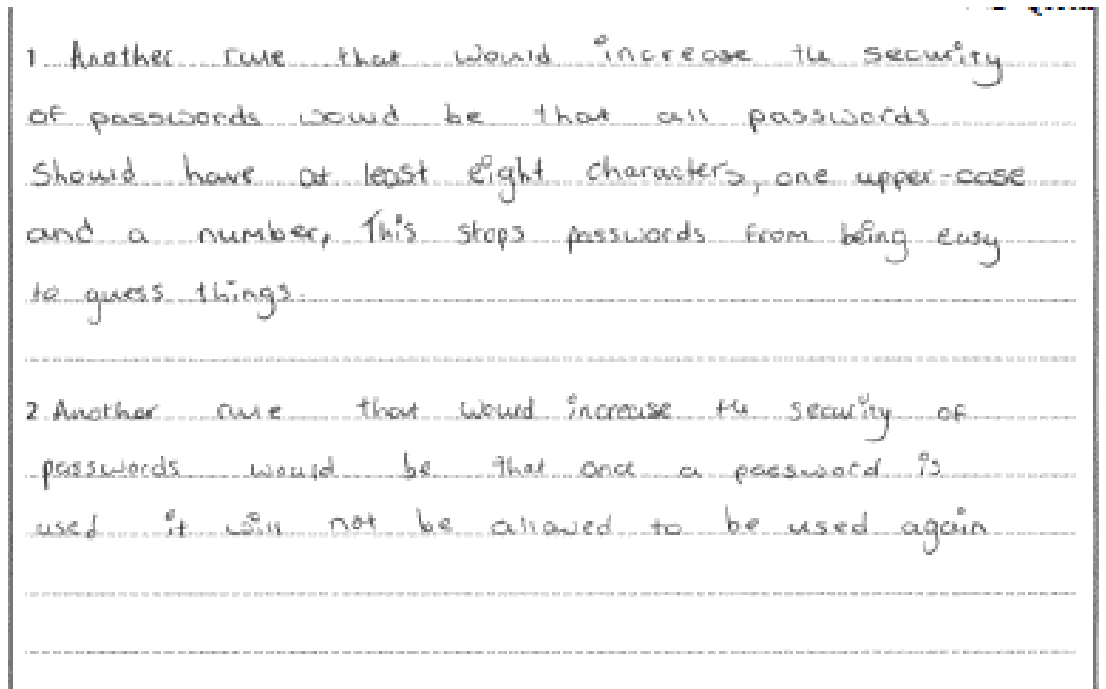 1 Another rule that would increase the security
of passwords would be that all passwords
should have at least eight characters, one upper-case
and a number, This stops passwords from being easy
to guess things.
2 Another rule that would increase the security of
passwords would be that once a password is
used it will not be allowed to be used again